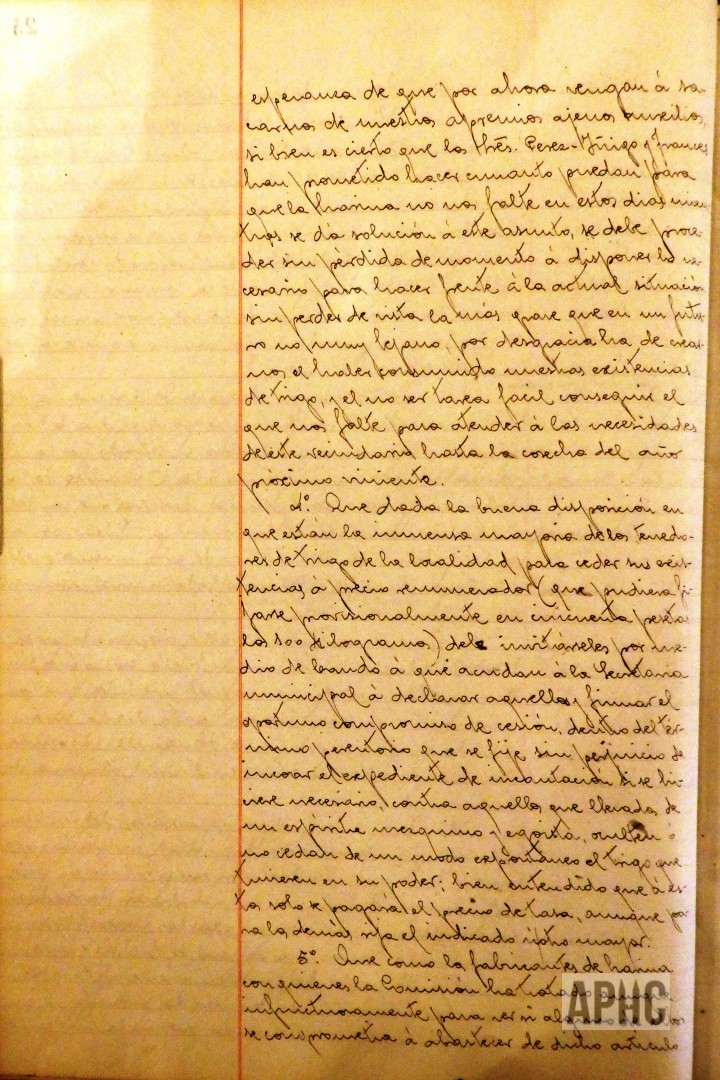 esperanza de que por ahora vengan á sa-
carnos de nuestros apremios ajenos auxilios,
si bien es cierto que los Srés. Perez-Iñigo y Frances
han prometido hacer cuanto puedan para
que la harina no nos falte en estos dias mien
tras se dá solución á este asunto, se debe proce-
der sin pérdida de momento á disponer lo ne-
cesario para hacer frente á la actual situación
sin perder de vista la más grave que en un futu-
ro no muy lejano, por desgracia ha de crear-
nos el haber consumido nuestras existencias
de trigo, y el no ser tarea facil conseguir el
que nos falte para atender á las necesidades
de este vecindario hasta la cosecha del año
próximo viniente.
4º. Que dada la buena disposición en
que están la inmensa mayoria de los tenedo-
res de trigo de la localidad para ceder sus exis-
tencias á precio remunerador (que pudiera fi-
jarse provisionalmente en cincuenta pesetas
los 100 kilogramos) debe invitárseles por me-
dio de bando á que acudan á la Secretaria
municipal á declarar aquellas y firmar el
oportuno compromiso de cesión, dentro del tér-
mino perentorio que se fije sin perjuicio de
incoar el expediente de incautación si se hi-
ciere necesario, contra aquellos que llevados de
un espíritu mezquino y egoista, oculten o
no cedan de un modo espontáneo el trigo que
tuvieren en su poder; bien entendido que á es-
tos solo se pagará el precio de tasa, aunque pa-
ra los demás rija el indicado ú otro mayor.
5º. Que como los fabricantes de harina
con quienes la Comisión ha tratado
infructuosamente para ver si alguno de ellos
se comprometia á abastecer de dicho articulo
APHC